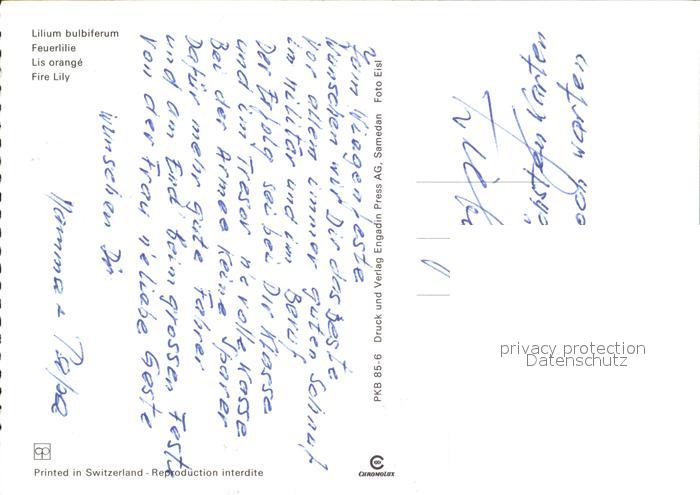 Lilium bulbiferum
Feuerlilie
Lis orangé
Fire Lily
Zum Wiegenfeste
Wünschen wir Dir das Beste
Vor allem immer guten Schnuf
im Militär und im Beruf
Der Erfolg sei bei Dir Klasse
und im Tresor ne volle Kasse
Bei der Armee keine Sparer
Dafür mehr gute Fahrer
und am End beim grossen Feste
Von der Frau ne liebe Geste
Wünschen Dir
Mamma + Papa
PKB 85-6 Druck und Verlag Engadin Press AG, Samedan Foto Eisl
privacy protection
Datenschutz
CHROMOLUX
Printed in Switzerland - Reproduction interdite